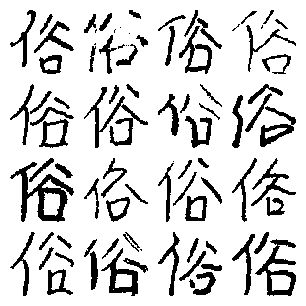 俗俗俗俗
俗俗俗俗
俗俗俗俗
俗俗俗俗